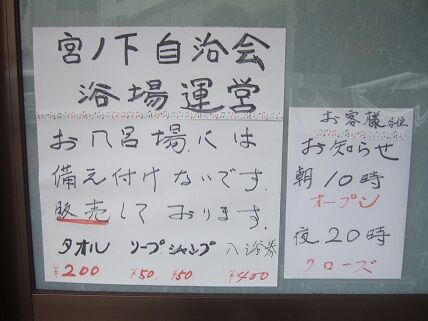 宮ノ下自治会
浴場運営
お風呂場には
備え付けないです.
販売しております.
タオル ソープ シャンプ 入浴券
¥200 ¥50. ¥50. ¥400
お客様各位
お知らせ
朝10時
オープン
夜20時
クローズ